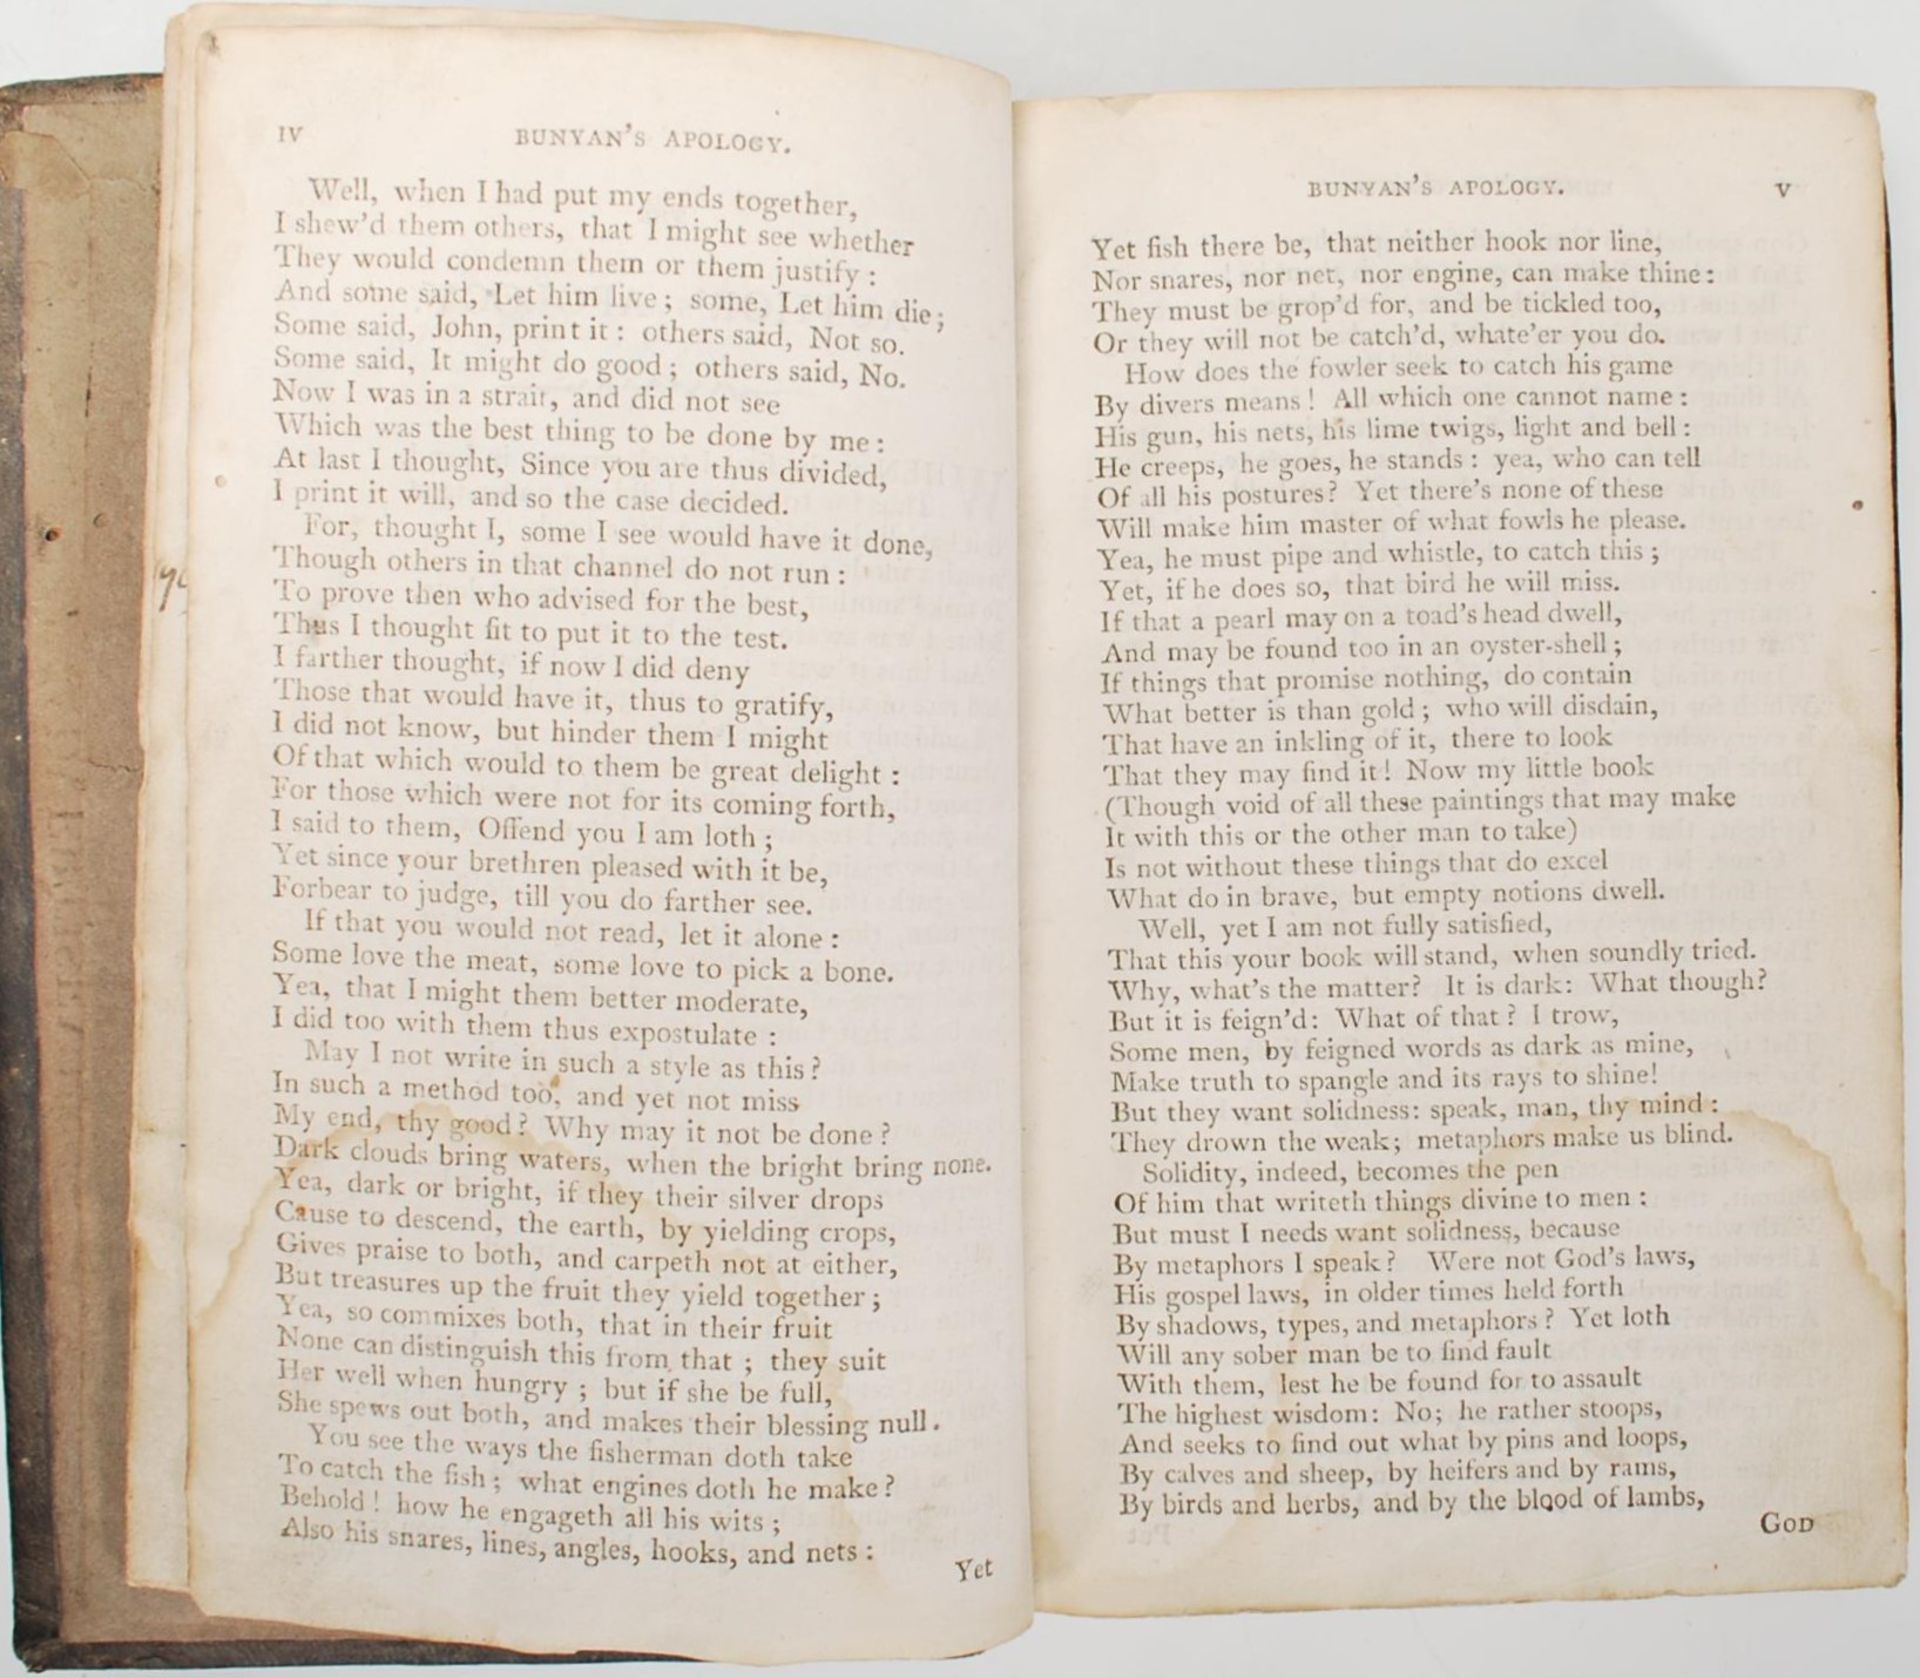 IV BUNYAN'S APOLOGY.
Well, when I had put my ends together,
I shew'd them others, that I might see whether
They would condemn them or them justify :
And some said, Let him live ; some, Let him die ;
Some said, John, print it : others said, Not so.
Some said, It might do good ; others said, No.
Now I was in a strait, and did not see
Which was the best thing to be done by me :
At last I thought, Since you are thus divided,
I print it will, and so the case decided.
For, thought I, some I see would have it done,
Though others in that channel do not run :
To prove then who advised for the best,
Thus I thought fit to put it to the test.
I farther thought, if now I did deny
Those that would have it, thus to gratify,
I did not know, but hinder them I might
Of that which would to them be great delight :
For those which were not for its coming forth,
I said to them, Offend you I am loth ;
Yet since your brethren pleased with it be,
Forbear to judge, till you do farther see.
If that you would not read, let it alone :
Some love the meat, some love to pick a bone.
Yea, that I might them better moderate,
I did too with them thus expostulate :
May I not write in such a style as this ?
In such a method too, and yet not miss
My end, thy good ? Why may it not be done ?
Dark clouds bring waters, when the bright bring none.
Yea, dark or bright, if they their silver drops
Cause to descend, the earth, by yielding crops,
Gives praise to both, and carpeth not at either,
But treasures up the fruit they yield together ;
Yea, so commixes both, that in their fruit
None can distinguish this from that ; they suit
Her well when hungry ; but if she be full,
She spews out both, and makes their blessing null.
You see the ways the fisherman doth take
To catch the fish ; what engines doth he make ?
Behold ! how he engageth all his wits ;
Also his snares, lines, angles, hooks, and nets :
Yet
BUNYAN'S APOLOGY. V
Yet fish there be, that neither hook nor line,
Nor snares, nor net, nor engine, can make thine :
They must be grop'd for, and be tickled too,
Or they will not be catch'd, whate'er you do.
How does the fowler seek to catch his game
By divers means ! All which one cannot name :
His gun, his nets, his lime twigs, light and bell :
He creeps, he goes, he stands : yea, who can tell
Of all his postures? Yet there's none of these
Will make him master of what fowls he please.
Yea, he must pipe and whistle, to catch this ;
Yet, if he does so, that bird he will miss.
If that a pearl may on a toad's head dwell,
And may be found too in an oyster-shell ;
If things that promise nothing, do contain
What better is than gold ; who will disdain,
That have an inkling of it, there to look
That they may find it ! Now my little book
(Though void of all these paintings that may make
It with this or the other man to take)
Is not without these things that do excel
What do in brave, but empty notions dwell.
Well, yet I am not fully satisfied,
That this your book will stand, when soundly tried.
Why, what's the matter? It is dark: What though?
But it is feign'd: What of that ? I trow,
Some men, by feigned words as dark as mine,
Make truth to spangle and its rays to shine!
But they want solidness: speak, man, thy mind :
They drown the weak; metaphors make us blind.
Solidity, indeed, becomes the pen
Of him that writeth things divine to men :
But must I needs want solidness, because
By metaphors I speak ? Were not God's laws,
His gospel laws, in older times held forth
By shadows, types, and metaphors ? Yet loth
Will any sober man be to find fault
With them, lest he be found for to assault
The highest wisdom: No; he rather stoops,
And seeks to find out what by pins and loops,
By calves and sheep, by heifers and by rams,
By birds and herbs, and by the blood of lambs,
GOD